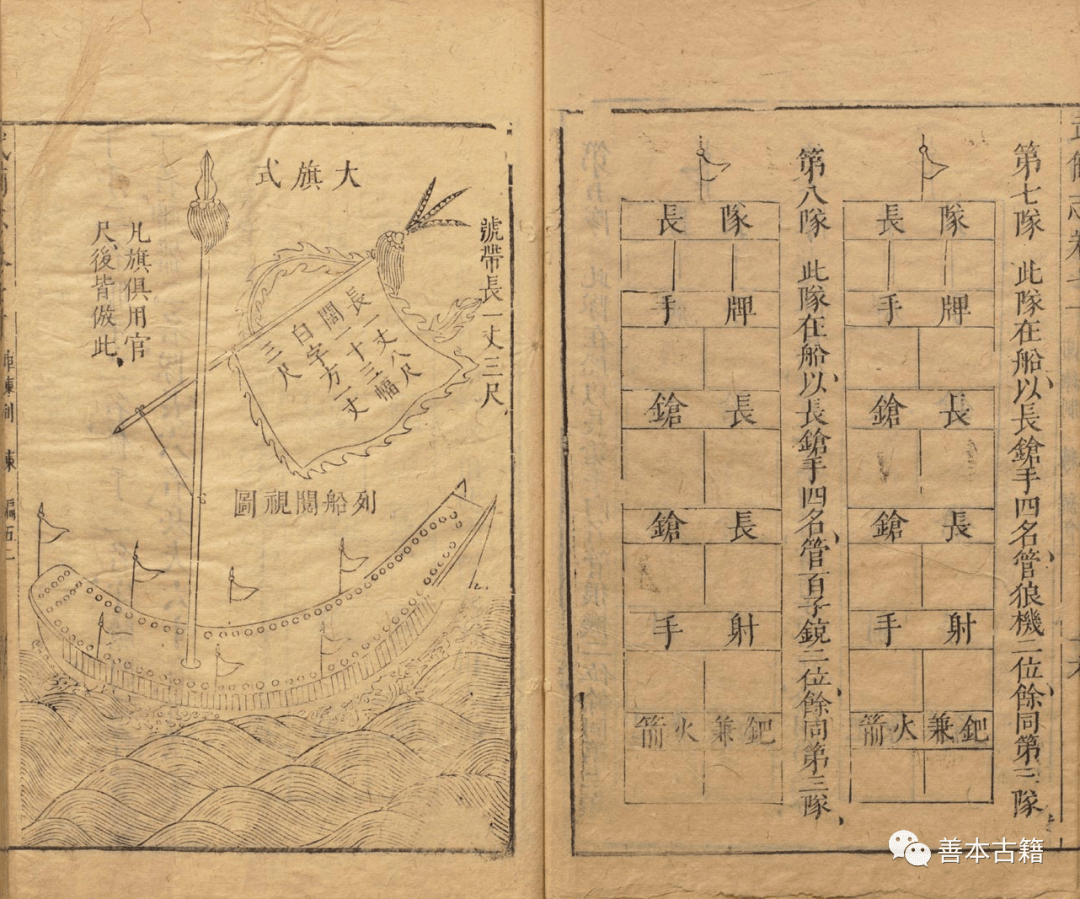 第七隊 此隊在船、以長鎗手四名、管狼機二位、餘同第三隊、
隊長
牌手
長鎗
長鎗
射手
鈀兼火箭
第八隊 此隊在船以、長鎗手四名、管百子銃二位、餘同第三隊、
隊長
牌手
長鎗
長鎗
射手
鈀兼火箭
號帶長一丈三尺
大旗式
長一丈八尺
闊一十三幅
白字方一丈
三尺
凡旗俱用官
尺、後皆倣此、
列船闊視圖
陣練制 練
善本古籍